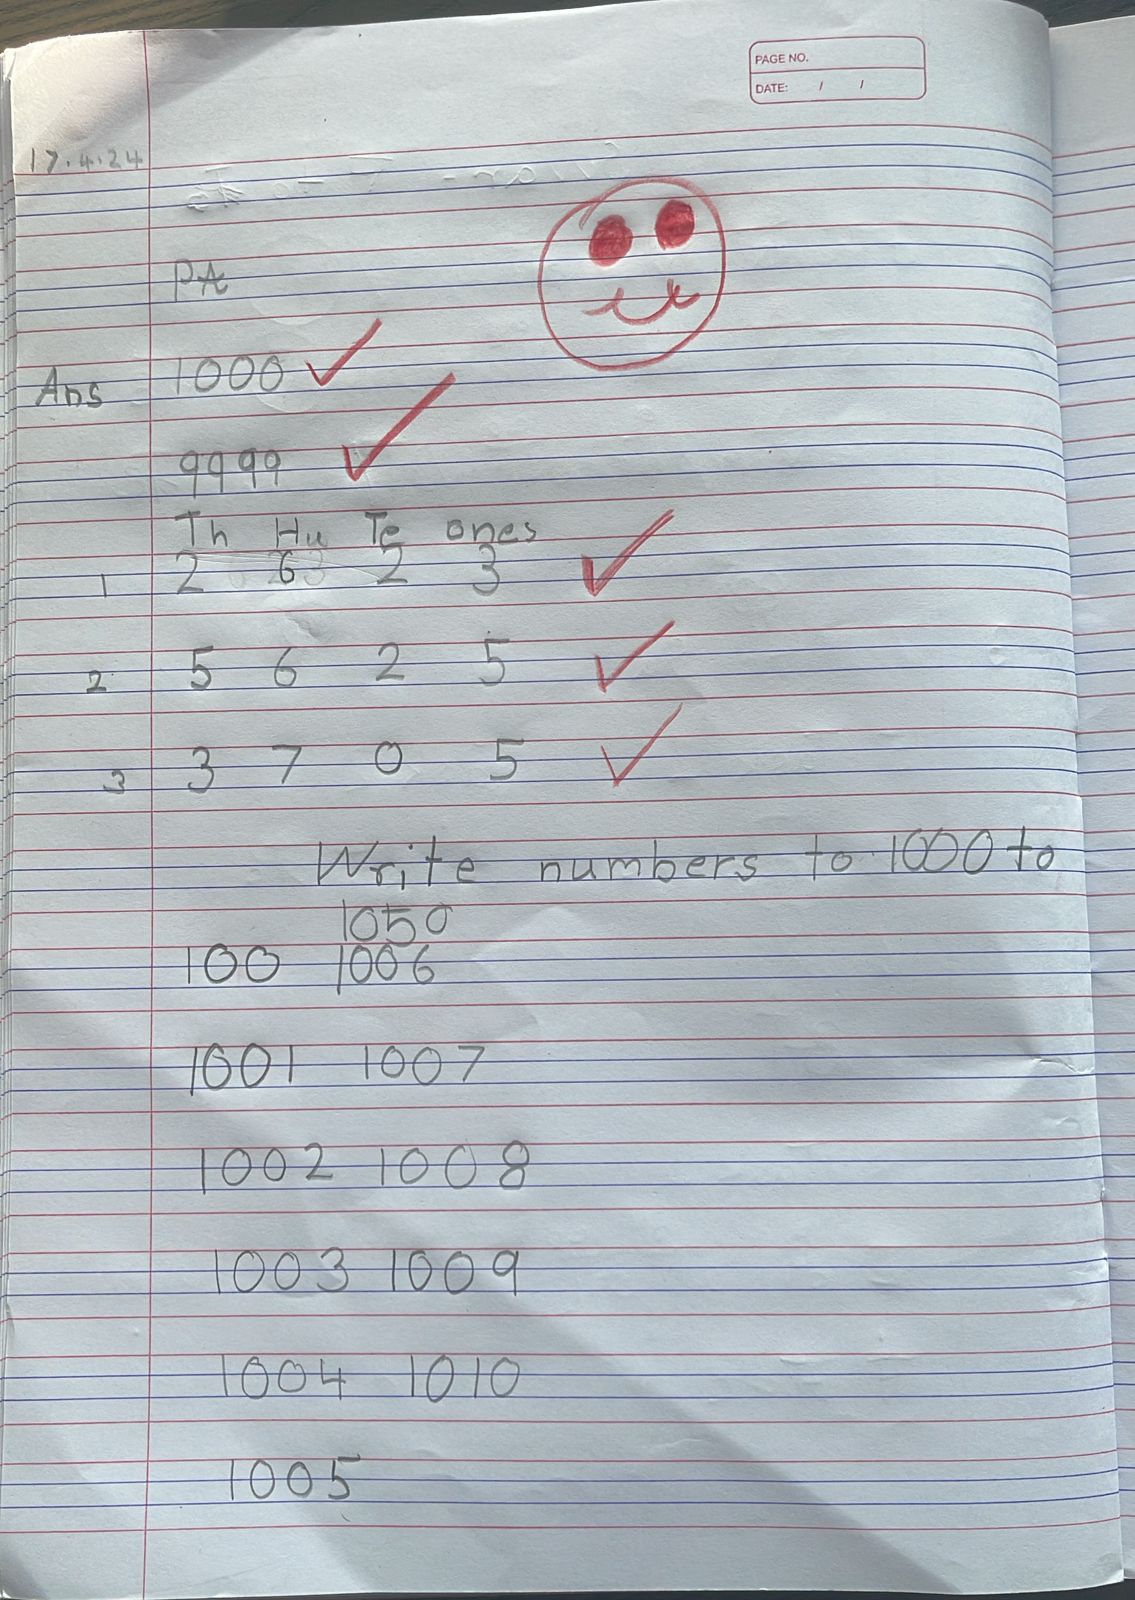 PAGE NO.
DATE: / /
17.4.24
PA
Ans 1000
9999
Th Hu Te ones
1 2 6 2 3
2 5 6 2 5
3 3 7 0 5
Write numbers to 1000 to
1050
100 1006
1001 1007
1002 1008
1003 1009
1004 1010
1005